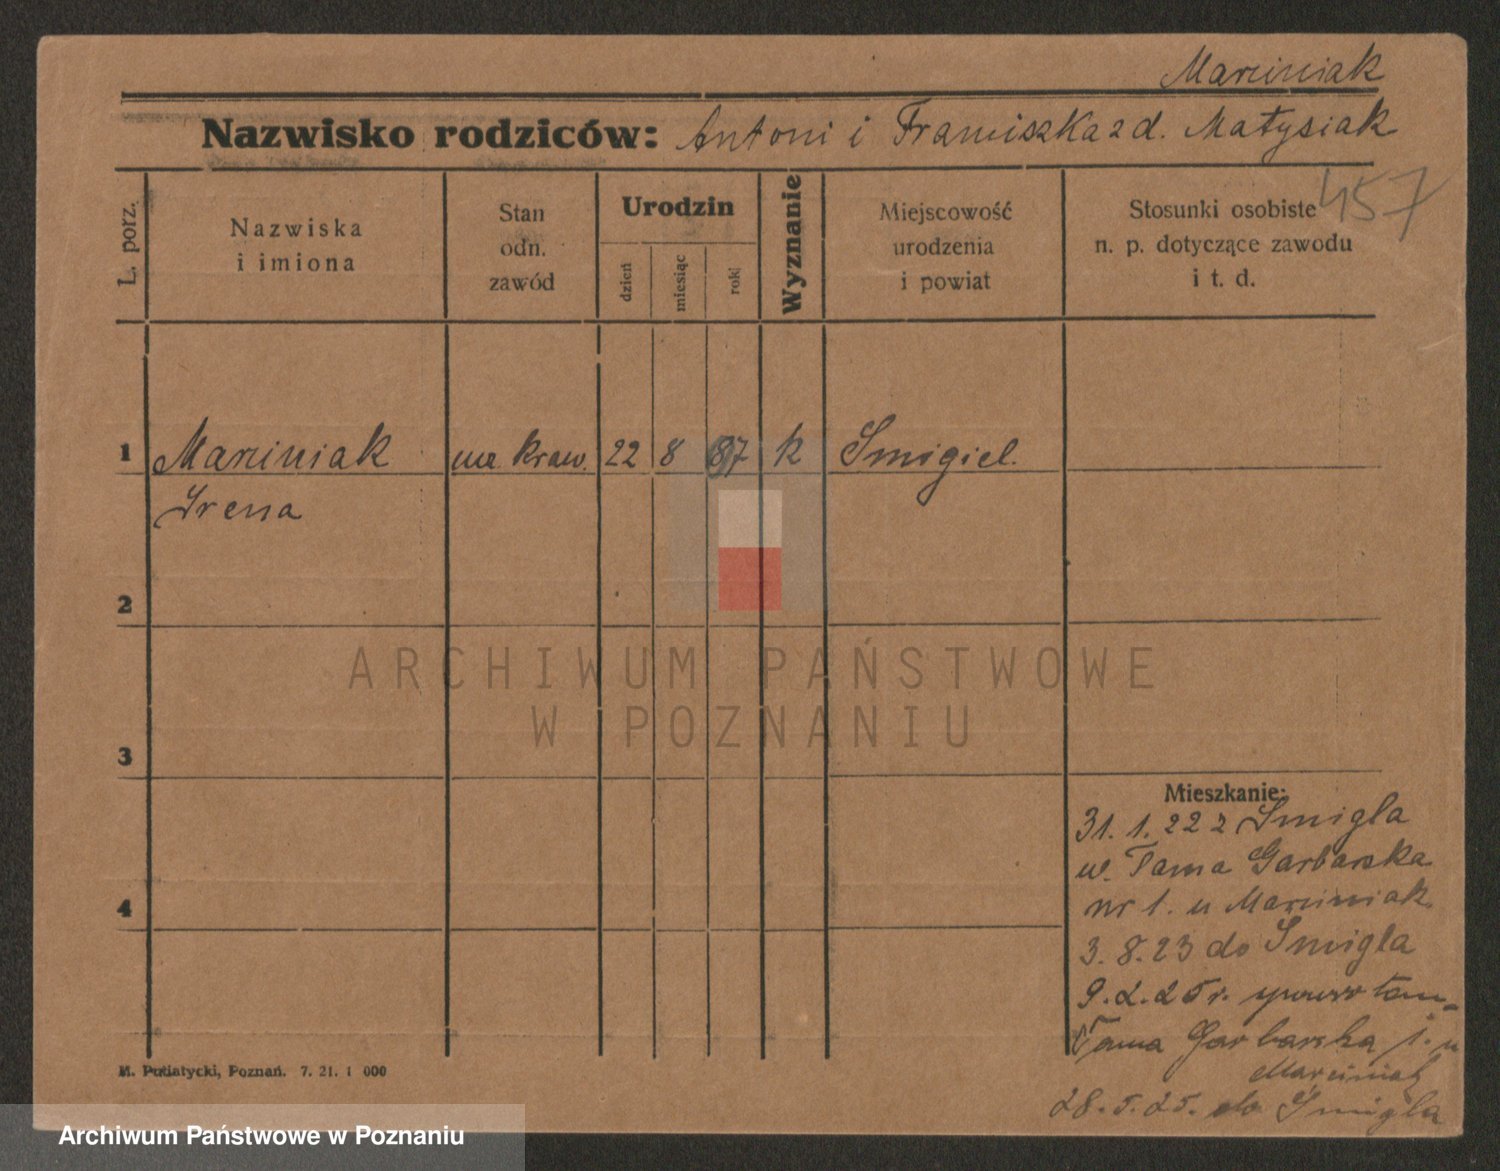 Marciniak
Nazwisko rodziców: Antoni i Franciszka z d. Matysiak
457
L. porz.
Nazwiska
i imiona
Stan
odn.
zawód
Urodzin
dzień
miesiąc
rok
Wyznanie
Miejscowość
urodzenia
i powiat
Stosunki osobiste
n. p. dotyczące zawodu
i t. d.
1 Marciniak kraw. 22 8 87 k Śmigiel.
Irena
2
ARCHIWUM PAŃSTWOWE
W POZNANIU
3
Mieszkanie:
31. 1. 22 z Śmigla
w. Tama Garbarska
nr 1. u Marciniak
4
3. 8. 23 do Śmigla
9. 2. 25 r.
Tama Garbarska 1. u
Marciniak
28. 5. 25. do Śmigla
M. Putiatycki, Poznań. 7. 21. 1 000
Archiwum Państwowe w Poznaniu